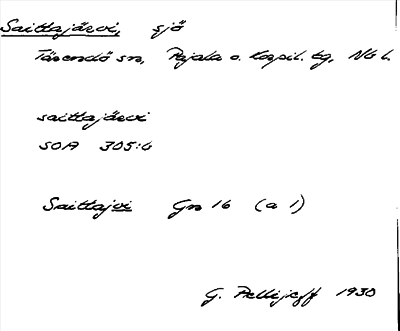 Saittajärvi, sjö
Tärendö sn, Pajala o. Korpil. tg, Nb l.
saittajärvi
SOA 305:6
Saittajvi Gn 16 (a 1)
G. Pellijeff 1930